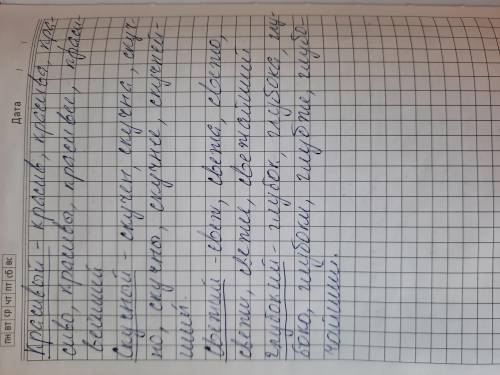 пн вт ср чт пт сб вс Дата / /
Красивый - красив, красива, кра-
сиво, красивы, красивее, краси-
вейший
Скучный - скучен, скучна, скуч-
но, скучны, скучнее, скучней-
ший.
Свежий - свеж, свежа, свежо,
свежи, свежее, свежайший
Глубокий - глубок, глубока, глу-
боко, глубоки, глубже, глубо-
чайший.